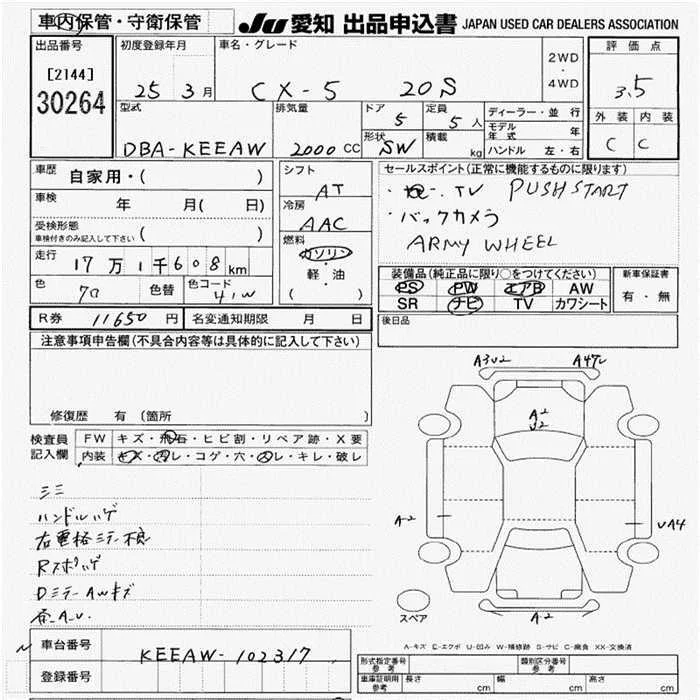 車内保管・守衛保管
JU 愛知 出品申込書 JAPAN USED CAR DEALERS ASSOCIATION
出品番号
[2144]
30264
初度登録年月
25 3月
車名・グレード
CX-5 20S
2WD
・
4WD
評価点
3.5
外装 内装
C C
型式
DBA-KEEAW
排気量
2000 CC
ドア
5
定員
5 人
形状
SW
積載
kg
ディーラー・並行
モデル年式 年
ハンドル 左・右
車歴
自家用・( )
車検
年 月( 日)
受検形態
車検付きのみ記入して下さい ( )
走行
17万1千608 km
色
色替
色コード
41W
シフト
AT
冷房
AAC
燃料
ガソリン
・
軽・油
( )
セールスポイント(正常に機能するものに限ります)
TV PUSH START
・バックカメラ
ARMY WHEEL
装備品(純正品に限り○をつけてください)
PS PW エアB AW
SR ナビ TV カワシート
新車保証書
有・無
後日品
R券 11650 円
名変通知期限 月 日
注意事項申告欄(不具合内容等は具体的に記入して下さい)
修復歴 有 (箇所 )
検査員記入欄
FW キズ・飛石・ヒビ割・リペア跡・X要
内装 キズ・汚レ・コゲ・穴・スレ・キレ・破レ
ハンドルハゲ
A3U2 A4
A2
U2
A-2
UA4
A-2
スペア
A-キズ E-エクボ U-凹み W-補修跡 S-サビ C-腐食 XX-交換済
車台番号
KEEAW-102317
登録番号
形式指定番号 参考
類別区分番号 参考
車庫証明用 参考 長さ cm 幅 cm 高さ cm